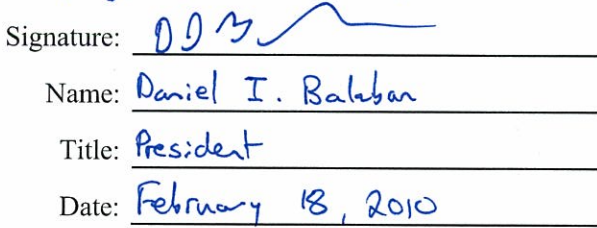 Signature:
Name: Daniel I. Balaban
Title: President
Date: February 18, 2010